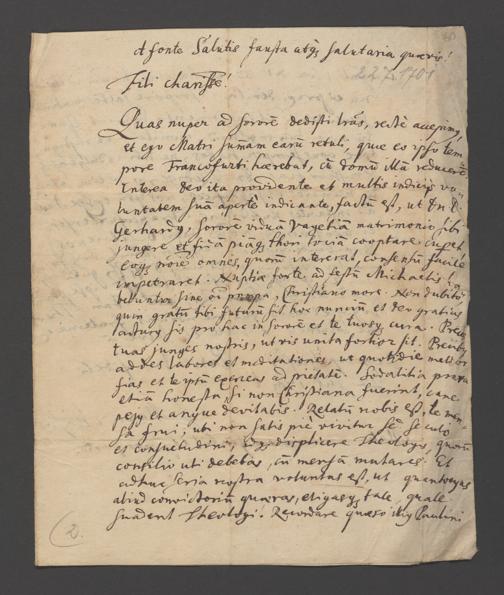 A fonte Salutis fausta atq; salutaria quævis!
22.X.1701
Fili chariss̃e!
Quas nuper ad sororẽ dedisti lr̃as, rectè accepimus,
et ego Matri sum̃am earũ retuli, quæ eo ipso tem
pore Francofurti hærebat, domũ reducerẽ
Interea deo ita providente et multis indiciis vo,
luntatem suã apertè indicante, factũ est, ut Dn D.
Gerhardy, sororẽ viduã matrimonio sibi
jungere et piãq; thori sociã cooptare
omnes, quorũ intererat, consensũ facilè
impetraret. Nuptiæ fortè ad festũ Michaelis
sine pompa, Christiano more. Non dubito
quin gratũ tibi futurũ sit hoc nunciũ et deo gratias
acturg sis pro hac in sororẽ et te cura. Preces
tuas junges nostris, ut vis unita fortior sit.
addes labores et meditationes, ut quotidie melior
fias et te ipsũ exerceas ad pietatẽ. Sodalitia
etiã honesta, si non Christiana fuerint, cane
pejg et angue devitabis. Relatũ nobis est, te men,
sa frui, ubi non satis piè vivitur, sẽ seculo
et consuetudini, displicere Theologis, quorũ
consilio uti debebas, cũ mensam mutares. Et
adhuc seria nostra voluntas est, ut quantocyus
aliud convictoriũ quæras, eligasq; tale, quale
suadent Theologi. Recordare quæso Paulini
2.